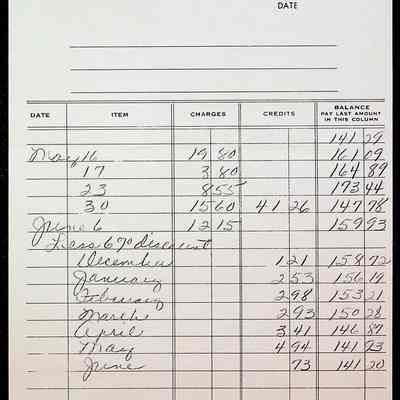 DATE
DATE ITEM CHARGES CREDITS BALANCE PAY LAST AMOUNT IN THIS COLUMN
141 29
May 16 19 80 161 09
17 3 80 164 89
23 8 55 173 44
30 15 60 41 26 147 78
June 6 12 15 159 93
Less 6% discount
December 1 21 158 72
January 2 53 156 19
February 2 98 153 21
March 2 93 150 28
April 3 41 146 87
May 4 94 141 93
June 73 141 20